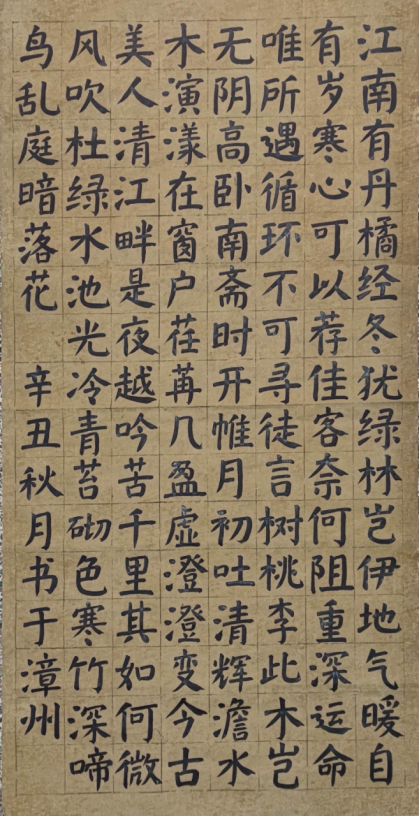 江南有丹橘经冬犹绿林岂伊地气暖自
有岁寒心可以荐佳客奈何阻重深运命
唯所遇循环不可寻徒言树桃李此木岂
无阴高卧南斋时开帷月初吐清辉澹水
木演漾在窗户荏苒几盈虚澄澄变今古
美人清江畔是夜越吟苦千里其如何微
风吹杜绿水池光冷青苔砌色寒竹深啼
鸟乱庭暗落花 辛丑秋月书于漳州